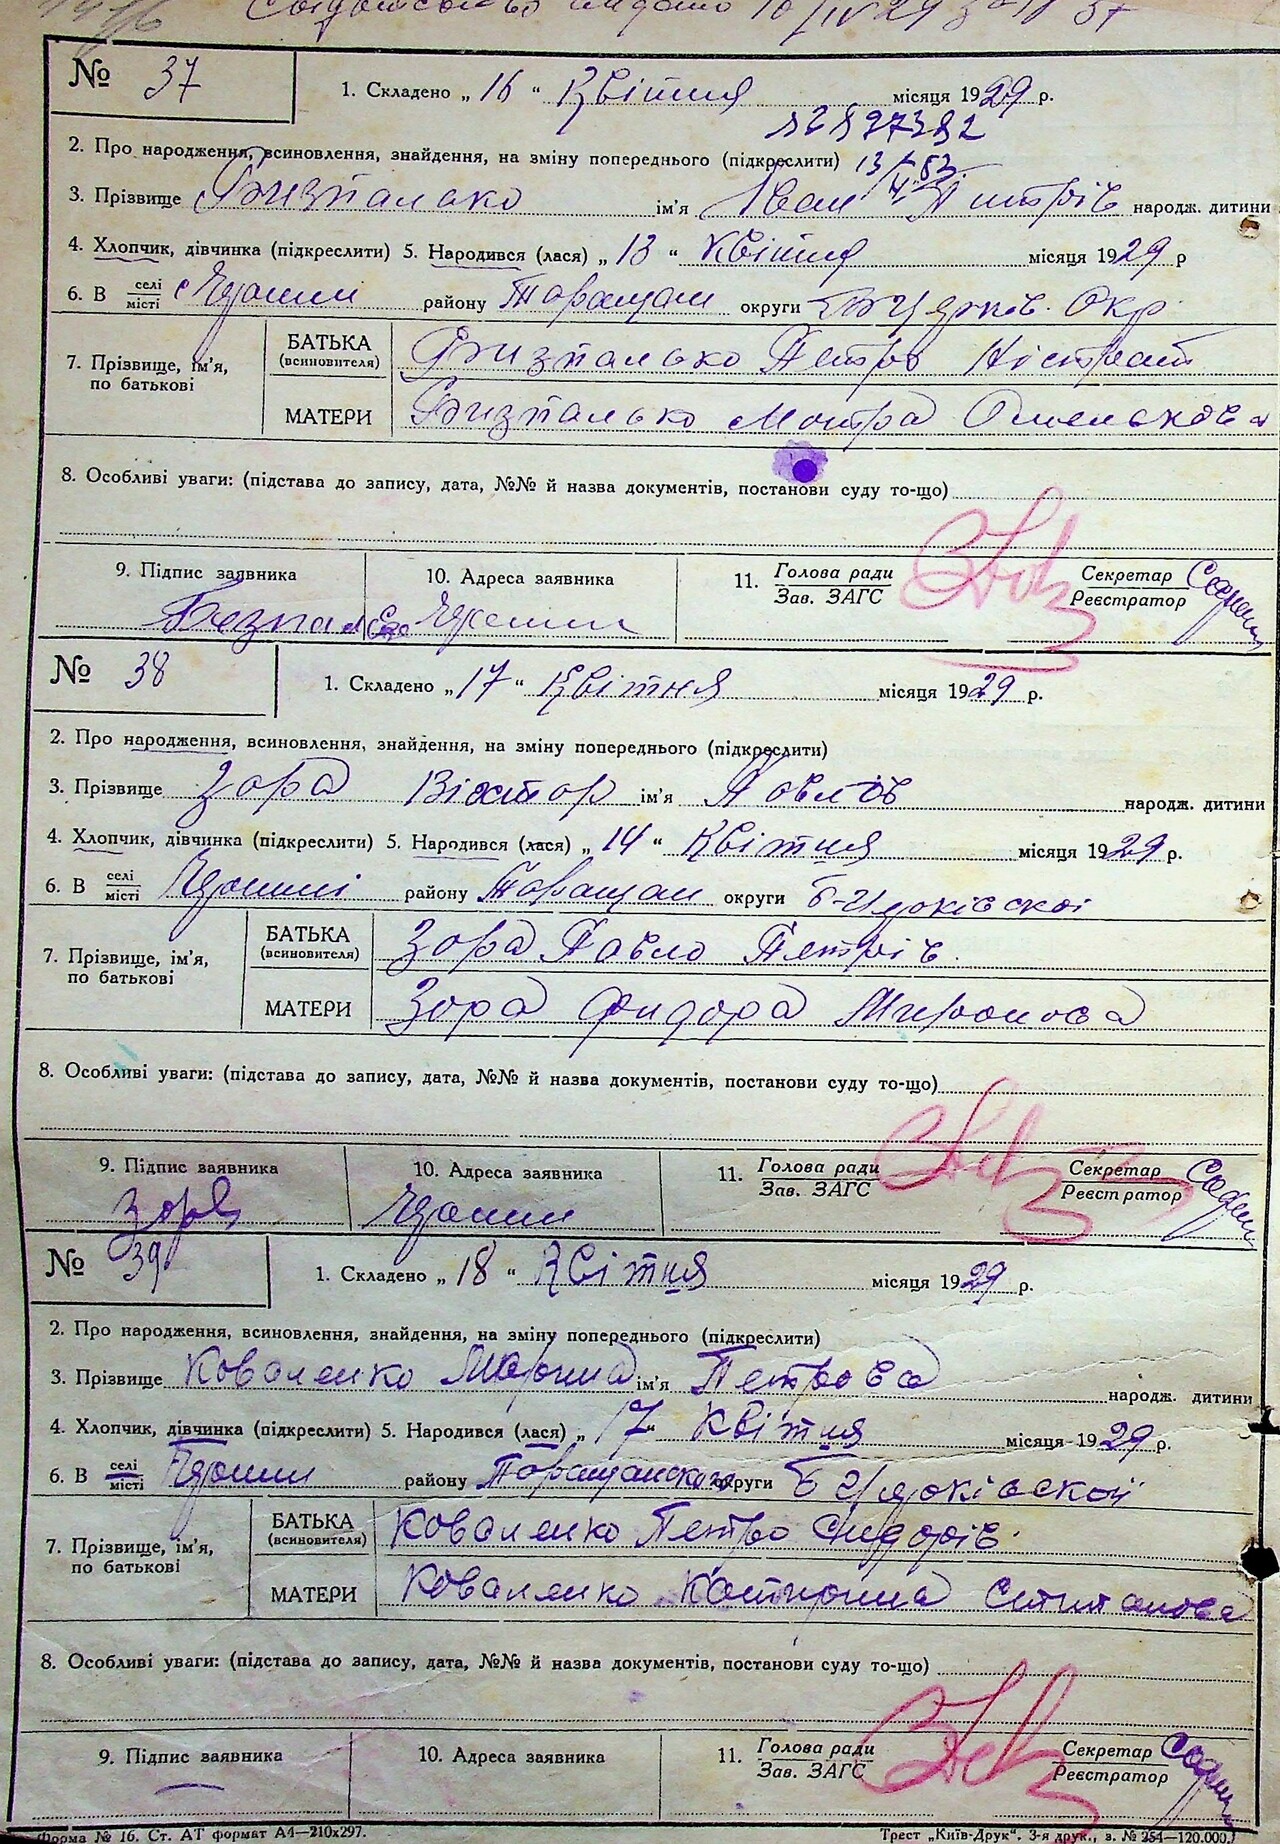 № 37
1. Складено „ 16 “ Квітня місяця 1929 р.
2. Про народження, всиновлення, знайдення, на зміну попереднього (підкреслити)
3. Прізвище ім'я Іван народж. дитини
4. Хлопчик, дівчинка (підкреслити) 5. Народився (лася) „ 13 “ Квітня місяця 1929 р
6. В селі місті району Таращан округи Б Церків. Окр.
7. Прізвище, ім'я, по батькові
БАТЬКА (всиновителя) Петро
МАТЕРИ
8. Особливі уваги: (підстава до запису, дата, №№ й назва документів, постанови суду то-що)
9. Підпис заявника 10. Адреса заявника 11. Голова ради Зав. ЗАГС Секретар Реєстратор
№ 38
1. Складено „ 17 “ Квітня місяця 1929 р.
2. Про народження, всиновлення, знайдення, на зміну попереднього (підкреслити)
3. Прізвище Зора Віктор ім'я Павлов народж. дитини
4. Хлопчик, дівчинка (підкреслити) 5. Народився (лася) „ 14 “ Квітня місяця 1929 р.
6. В селі місті району Таращан округи Б-Церківскоі
7. Прізвище, ім'я, по батькові
БАТЬКА (всиновителя) Зора Павло Петрів.
МАТЕРИ Зора Фидора Миронова
8. Особливі уваги: (підстава до запису, дата, №№ й назва документів, постанови суду то-що)
9. Підпис заявника 10. Адреса заявника 11. Голова ради Зав. ЗАГС Секретар Реєстратор
Зора
№ 39
1. Складено „ 18 “ Квітня місяця 1929 р.
2. Про народження, всиновлення, знайдення, на зміну попереднього (підкреслити)
3. Прізвище Коваленко ім'я Петрова народж. дитини
4. Хлопчик, дівчинка (підкреслити) 5. Народився (лася) „ 17 “ Квітня місяця 1929 р.
6. В селі місті району округи
7. Прізвище, ім'я, по батькові
БАТЬКА (всиновителя) Коваленко Петро Сидорів.
МАТЕРИ Коваленко
8. Особливі уваги: (підстава до запису, дата, №№ й назва документів, постанови суду то-що)
9. Підпис заявника 10. Адреса заявника 11. Голова ради Зав. ЗАГС Секретар Реєстратор
Форма № 16. Ст. АТ формат А4—210х297. Трест „Київ-Друк“. 3-я друк., з. № 254—120.000.